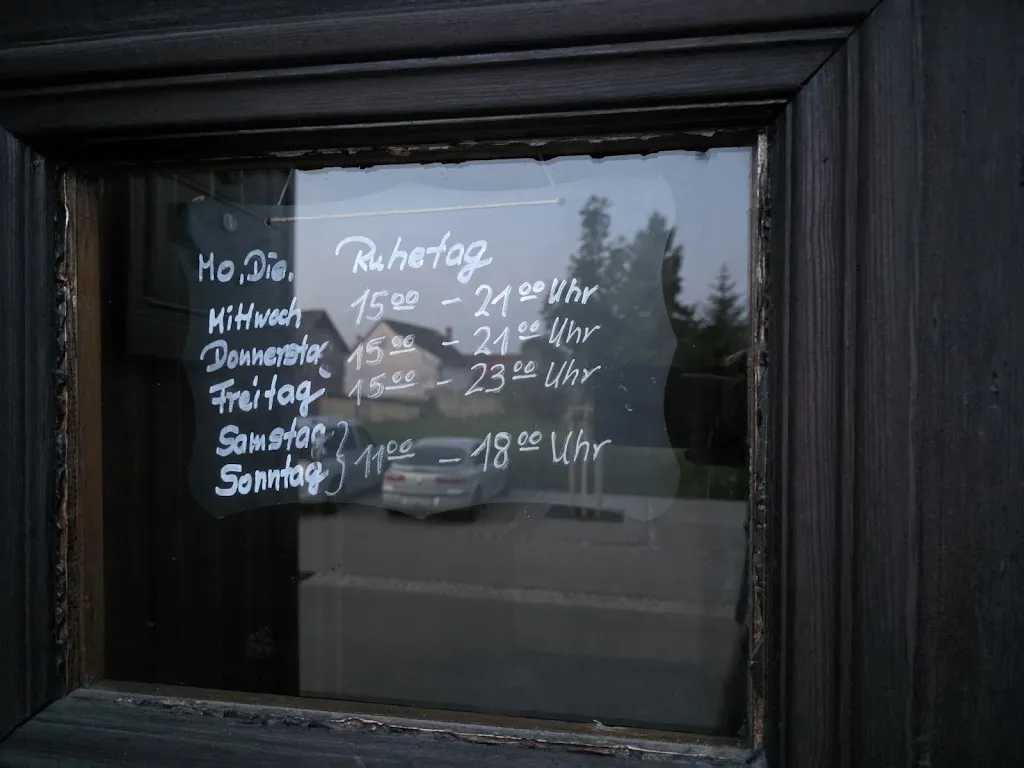 Mo, Die. Ruhetag
Mittwoch 15⁰⁰ – 21⁰⁰ Uhr
Donnerstag 15⁰⁰ – 21⁰⁰ Uhr
Freitag 15⁰⁰ – 23⁰⁰ Uhr
Samstag
Sonntag } 11⁰⁰ – 18⁰⁰ Uhr